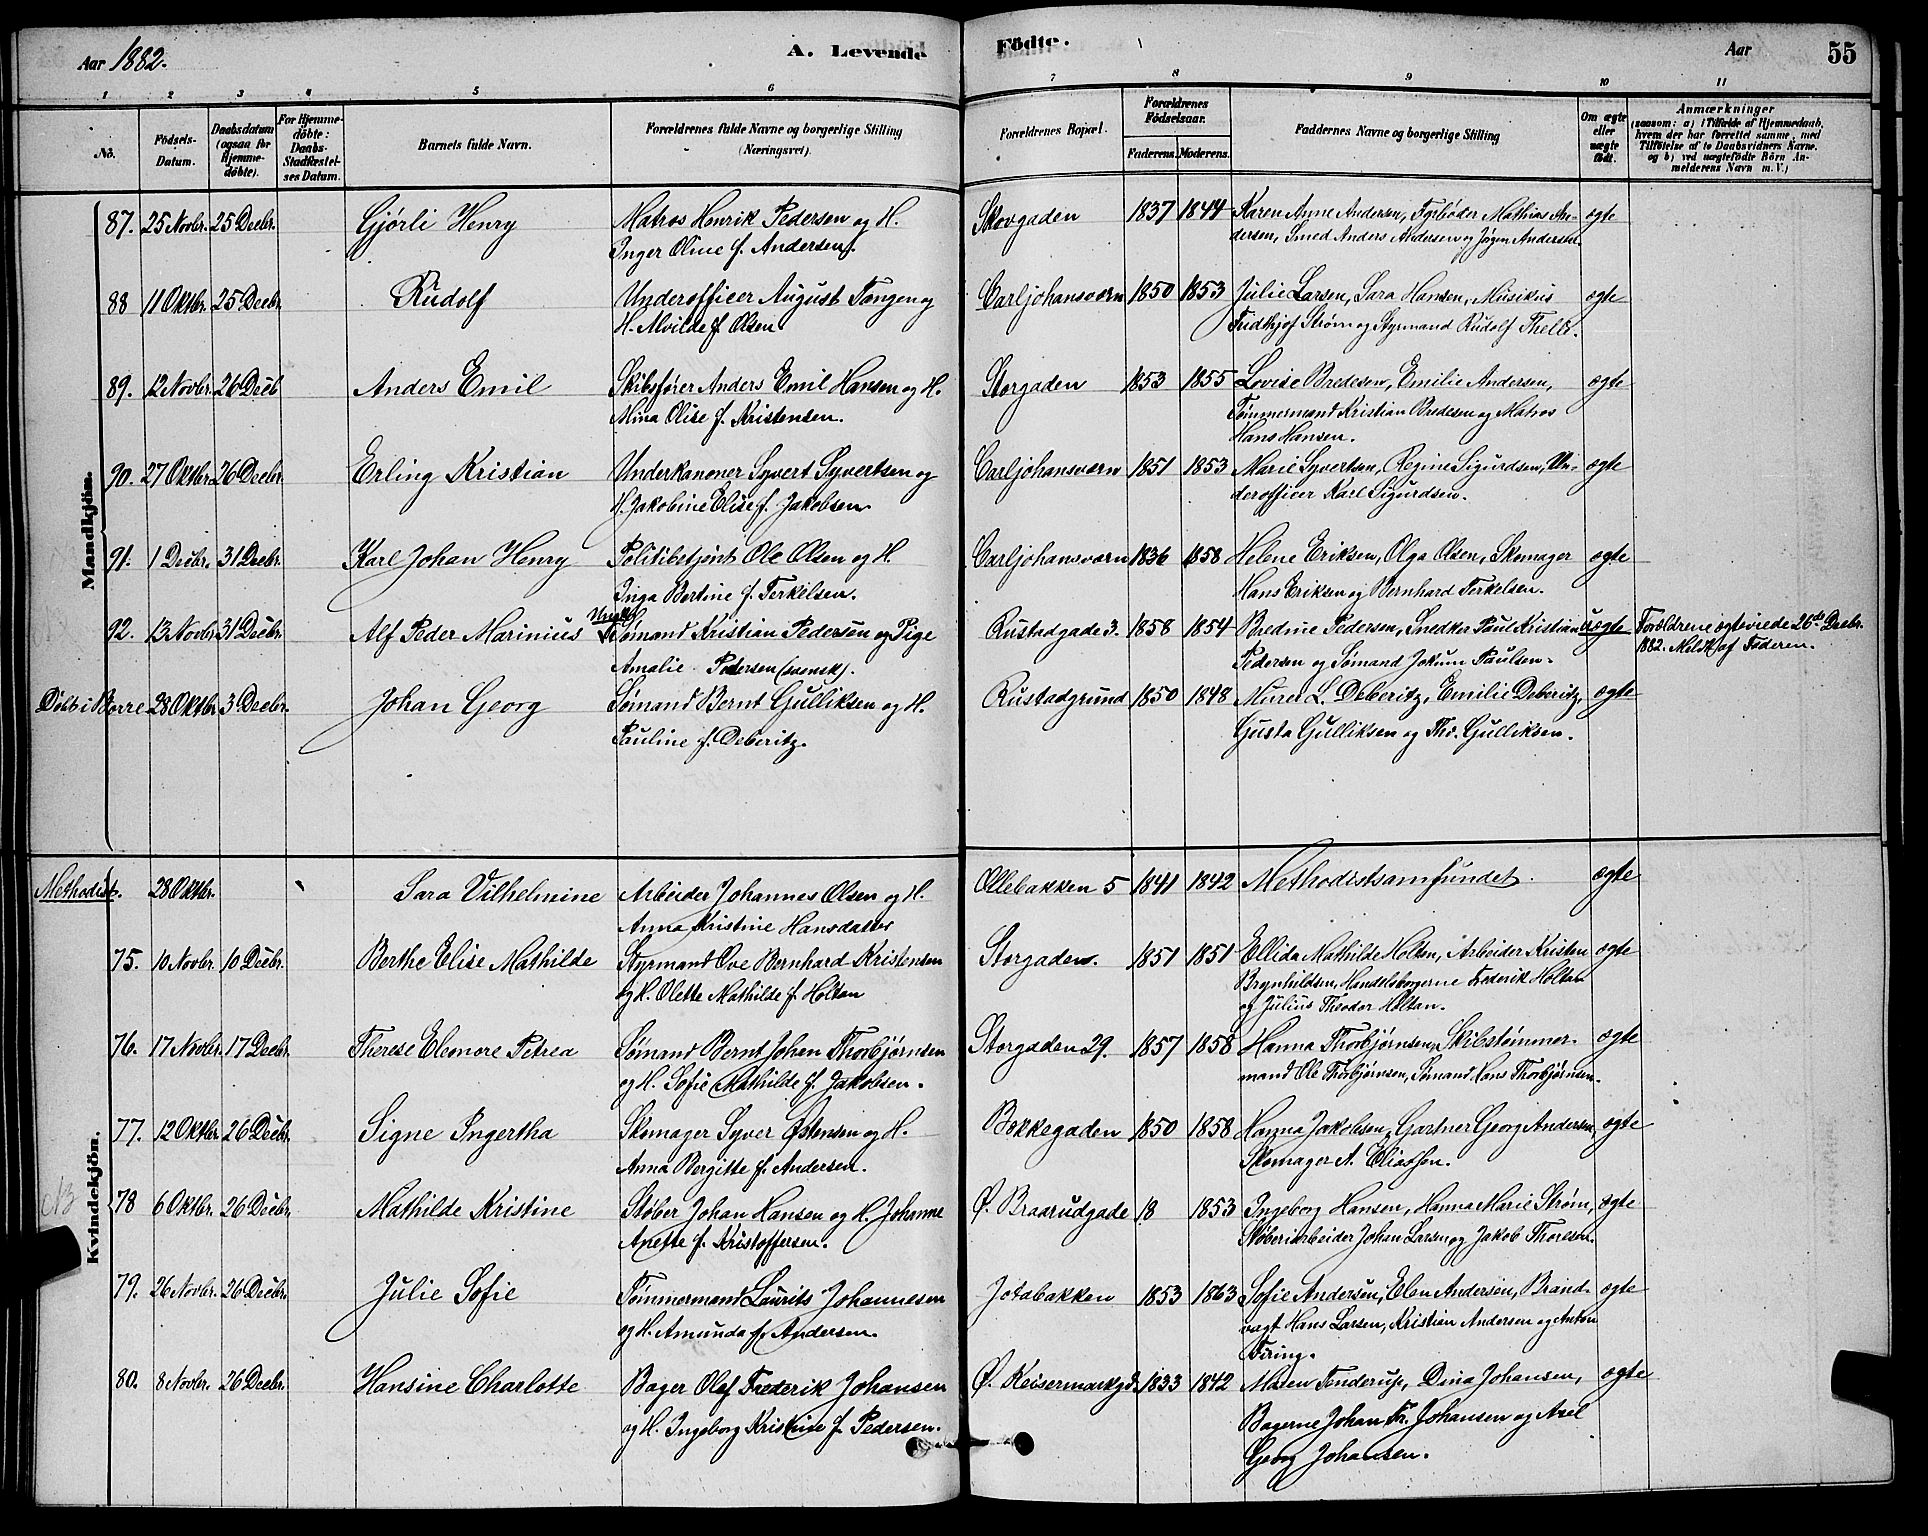 Aar 1882. A. Levende Födte. Aar 55
1 2 3 4 5 6 7 8 9 10 11
No. Födsels-Datum. Daabsdatum (ogsaa for Hjemme-döbte). For Hjemme-döbte: Daabs-Stadfæstel-ses Datum. Barnets fulde Navn. Forældrenes fulde Navne og borgerlige Stilling (Næringsvei). Forældrenes Bopæl. Forældrenes Födselsaar. Faderens. Moderens. Faddernes Navne og borgerlige Stilling Om ægte eller uægte födt. Anmærkninger
(saasom: a) i Tilfælde af Hjemmedaab,
hvem der har forrettet samme, med
Tilföielse af to Daabsvidners Navne,
og b) ved uægtefödte Börn An-
melderens Navn m. V.)
Mandkjön.
87. 25 Novbr. 25 Decbr. Gjørli Henry Matros Henrik Pedersen og H. Skovgaden 1837 1844 Karen Anne Andersen, Forbøder Mathias An- ægte
Inger Oline f. Andersen. dersen, Smed Anders Andersen og Jørgen Andersen
88 11 Oktbr. 25 Decbr. Rudolf Underofficer August Tangen og Carljohansværn 1850 1853 Julie Larsen, Sara Hansen, Musikus ægte
H. Alvilde f. Olsen Fridthjof Strøm og Styrmand Rudolf
89. 12 Novbr. 26 Decb Anders Emil Skibsfører Anders Emil Hansen og H. Storgaden 1853 1855 Lovise Bredesen, Emilie Andersen, ægte
Mina Olise f. Kristensen. Tømmermand Kristian Bredesen og Matros
Hans Hansen.
90. 27 Oktbr. 26 Decbr. Erling Kristian Underkanoner Syvert Syvertsen og Carljohansværn 1851 1853 Marie Syvertsen, Regine Sigurdsen, Un- ægte
H. Jakobine Elise f. Jakobsen deroffcer Karl Sigurdsen.
91. 1 Decbr. 31 Decbr. Karl Johan Henry Politibetjent Ole Olsen og H. Carljohansværn 1836 1858 Helene Eriksen, Olga Olsen, Skomager ægte
Inga Bertine f. Terkelsen. Hans Eriksen og Bernhard Terkelsen.
92. 13 Novbr. 31 Decbr. Alf Peder Marinius Sømand Kristian Pedersen og Pige Rustadgade 3. 1858 1854 Bredine Pedersen, Snedker Paul Kristian uægte Forældrene ægteviede 26de Decbr.
Amalie Pedersen (svensk). Pedersen og Sømand Jokum Paulsen. 1882. Meldt af Faderen.
Döbt i Borre 28 Oktbr. 3 Decbr. Johan Georg Sømand Bernt Gulliksen og H. Rustadgrund 1850 1848 Murer L. Deberitz, Emilie Deberitz, ægte
Pauline f. Deberitz. Gusta Gulliksen og Thr. Gulliksen.
Kvindekjön.
Methodist. 28 Oktbr. Sara Vilhelmine Arbeider Johannes Olsen og H. Ollebakken 5 1841 1842 Methodistsamfundet. ægte
Anna Kristine Hansdatter
75. 10 Novbr. 10 Decbr. Berthe Elise Mathilde Styrmand Ove Bernhard Kristensen Storgaden. 1851 1851 Ellida Mathilde Holtan, Arbeider Kristen ægte
og H. Olette Mathilde f. Holtan Brynhildsen, Handelsborgerne Frederik Holtan
og Julius Theodor Holtan.
76. 17 Novbr. 17 Decbr. Therese Eleonore Petrea Sømand Bernt Johan Thorbjørnsen Storgaden 29. 1857 1858 Hanna Thorbjørnsen, Skibstømmer- ægte
og H. Sofie Mathilde f. Jakobsen. mand Ole Thorbjørnsen, Sømand Hans Thorbjørnsen.
77. 12 Oktbr. 26 Decbr. Signe Ingertha Skomager Syver Østensen og H. Bekkegaden 1850 1858 Hanna Jakobsen, Gartner Georg Andersen, ægte
Anna Bergitte f. Andersen. Skomager A. Eliassen.
NB 78 6 Oktbr. 26 Decbr. Mathilde Kristine Støber Johan Hansen og H. Johanne Ø. Braarudgade 18 1853 Ingeborg Hansen, Hanna Marie Strøm, ægte
Anette f. Kristoffersen. Støberiarbeider Johan Larsen og Jakob Thoresen.
79. 26 Novbr. 26 Decbr. Julie Sofie Tømmermand Laurits Johannesen Jotabakken 1853 1863 Sofie Andersen, Elen Andersen, Brand- ægte
og H. Amunda f. Andersen. vagt Hans Larsen, Kristian Andersen og Anton
Firing.
80. 8 Novbr. 26 Decbr. Hansine Charlotte Bager Olaf Frederik Johansen Ø. Keisermarkgd. 1833 1842 Maren Tenderup, Dina Johansen, ægte
og H. Ingeborg Kristine f. Pedersen. Bagerne Johan Fr. Johansen og Axel
Georg Johansen.